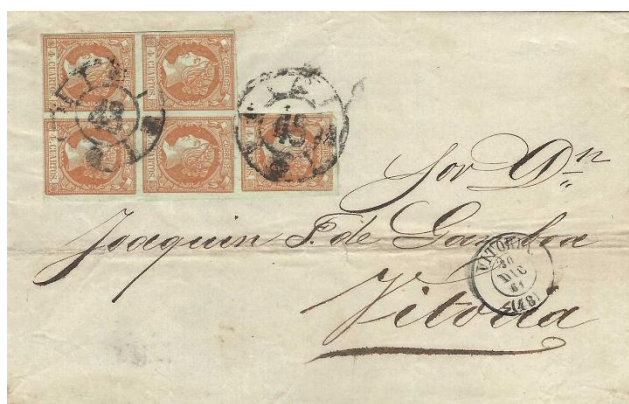 4 CUARTOS
4 CUARTOS
4 CUARTOS
4 CUARTOS
4 CUARTOS
Sor Dn
Joaquin F. de Gamboa
VITORIA
30
DIC
61
(48)
Vitoria